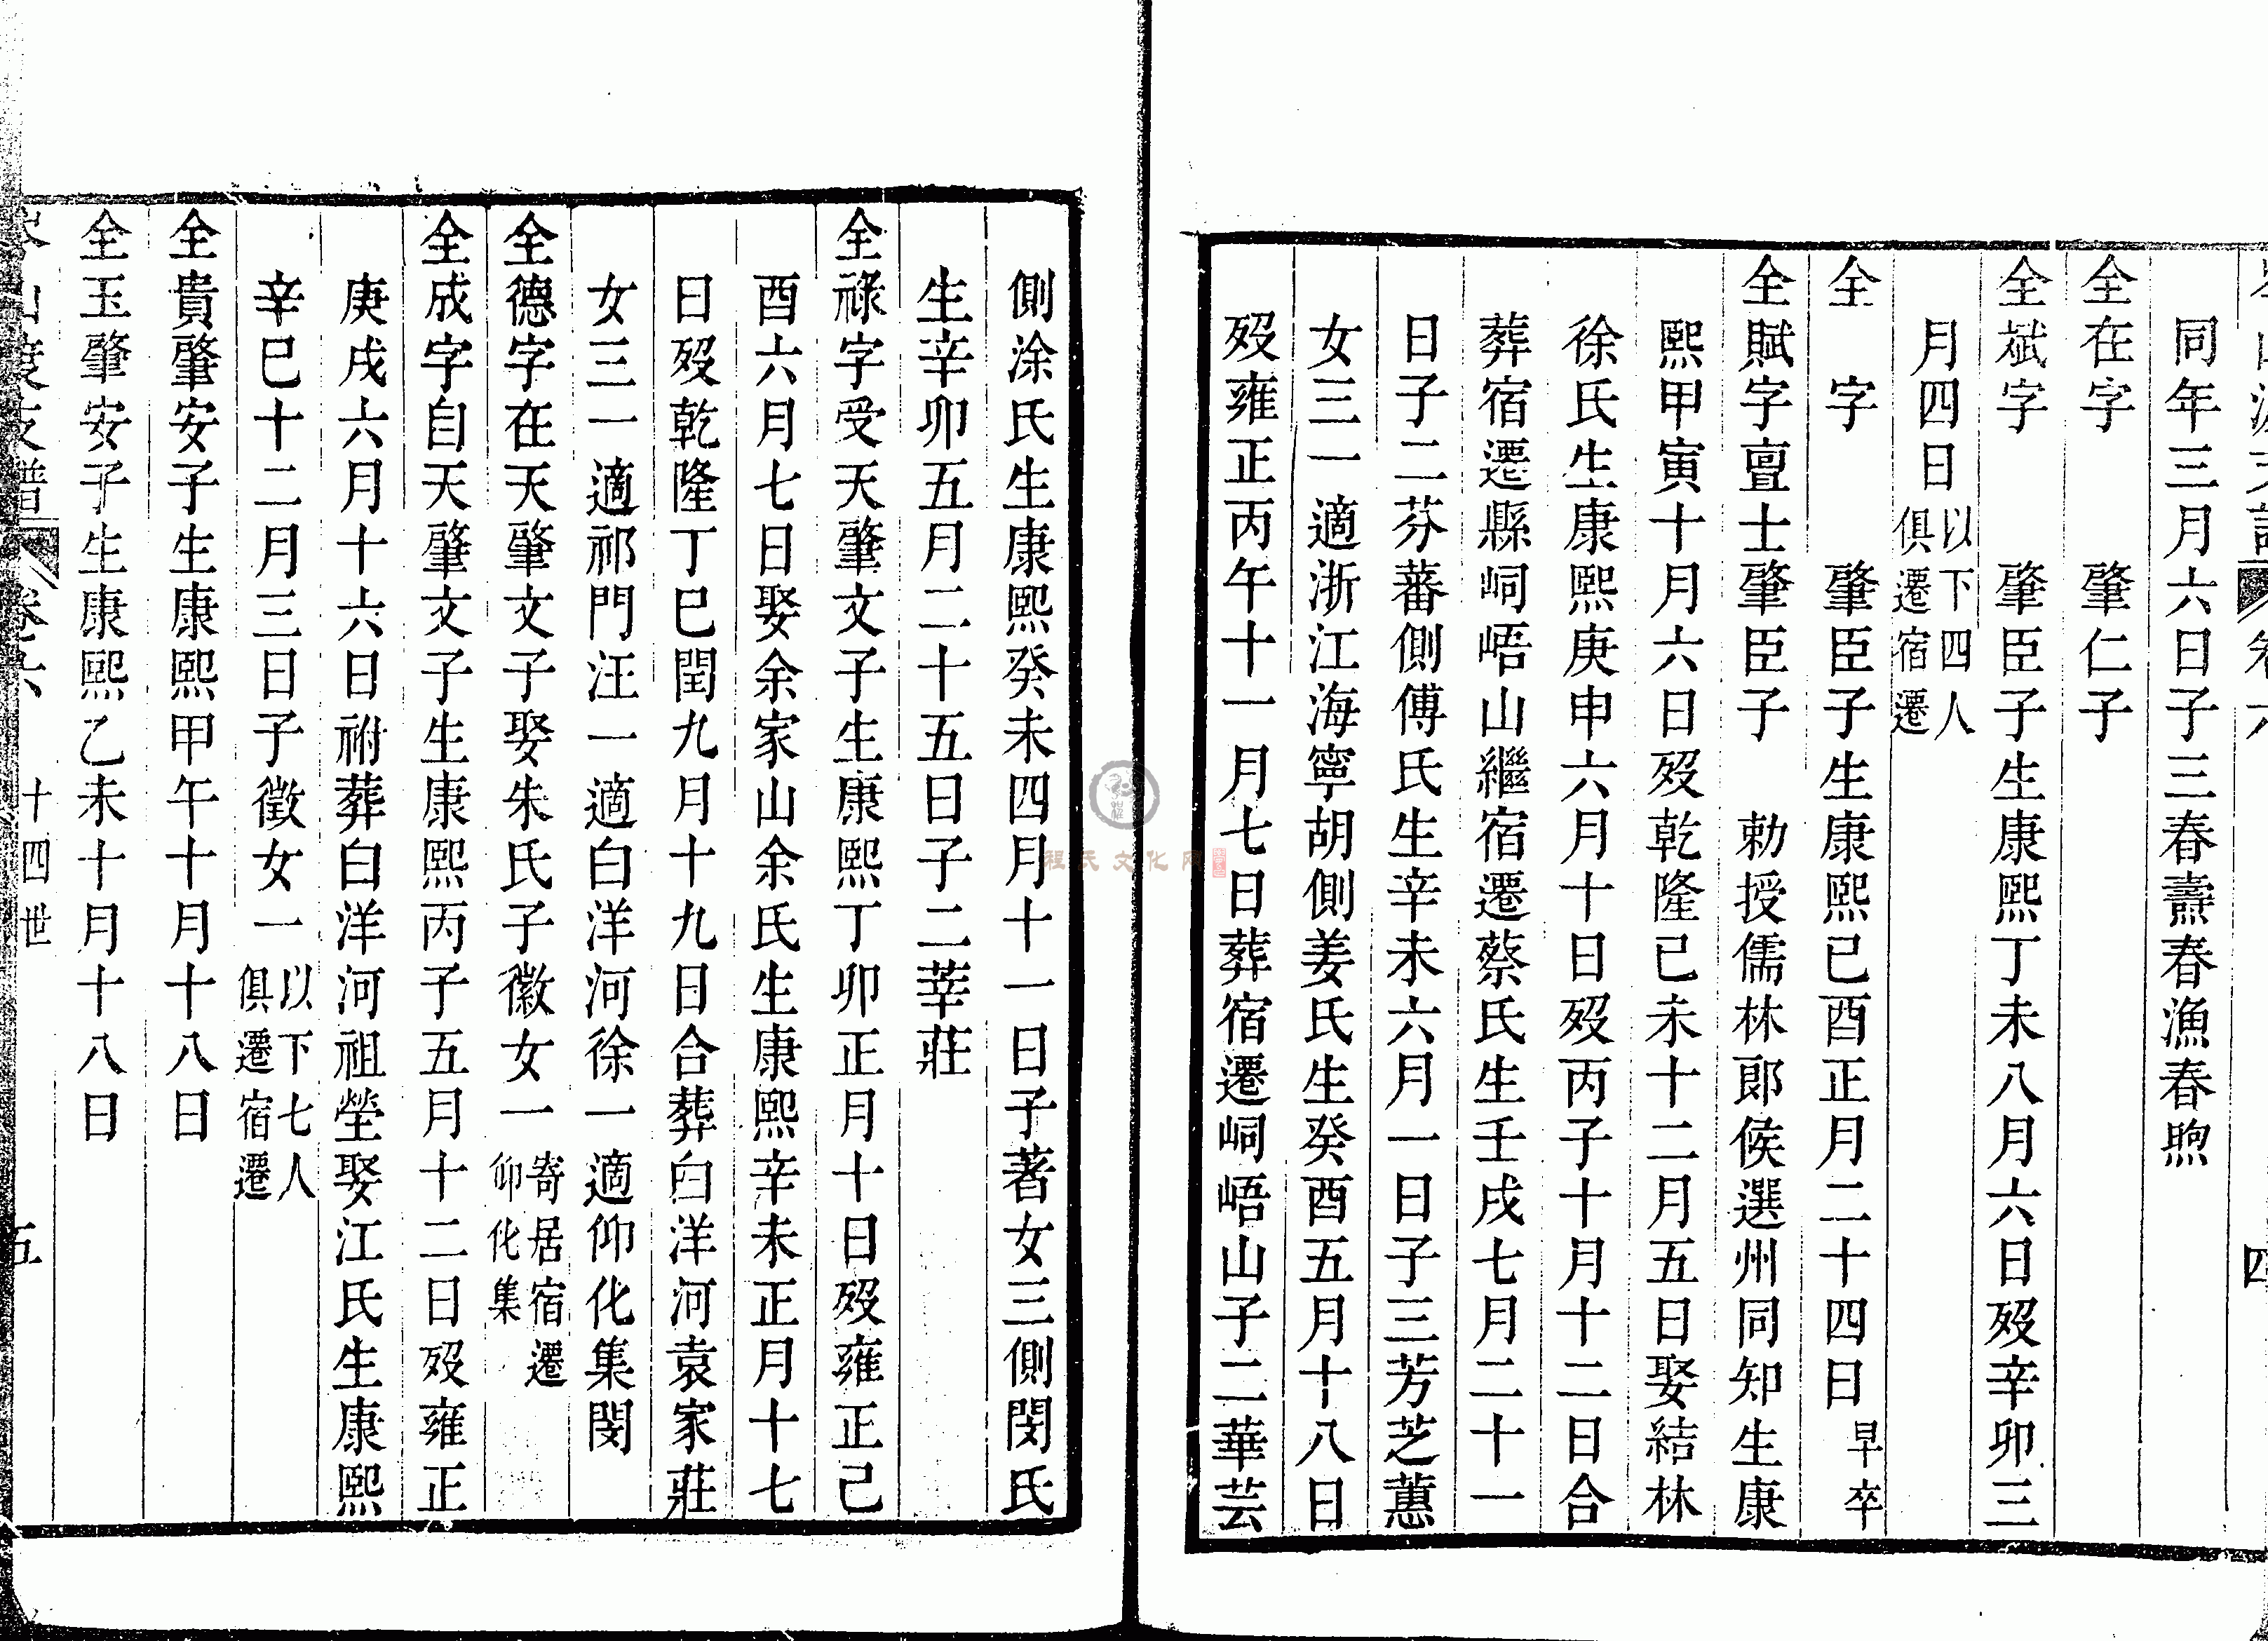 同年三月六日子三春燾春漁春煦
全在字　　肇仁子
全斌字　　肇臣子生康熙丁未八月六日歿辛卯三
月四日以下四人
俱遷宿遷
全　字　　肇臣子生康熙己酉正月二十四日早卒
全賦字亶士肇臣子　勅授儒林郎候選州同知生康
熙甲寅十月六日歿乾隆己未十二月五日娶結林
徐氏生康熙庚申六月十日歿丙子十月十二日合
葬宿遷縣峒峿山繼宿遷蔡氏生壬戌七月二十一
日子二芬蕃側傅氏生辛未六月一日子三芳芝蕙
女三一適浙江海寧胡側姜氏生癸酉五月十八日
歿雍正丙午十一月七日葬宿遷峒峿山子二華芸
四
側涂氏生康熙癸未四月十一日子著女三側閔氏
生辛卯五月二十五日子二莘莊
全祿字受天肇文子生康熙丁卯正月十日歿雍正己
酉六月七日娶余家山余氏生康熙辛未正月十七
日歿乾隆丁巳閏九月十九日合葬白洋河袁家莊
女三一適祁門汪一適白洋河徐一適仰化集閔
全德字在天肇文子娶朱氏子徽女一寄居宿遷
仰化集
全成字自天肇文子生康熙丙子五月十二日歿雍正
庚戌六月十六日祔葬白洋河祖塋娶江氏生康熙
辛巳十二月三日子徵女一以下七人
俱遷宿遷
全貴肇安子生康熙甲午十月十八日
全玉肇安子生康熙乙未十月十八日
山渡支譜　卷六　十四世　五